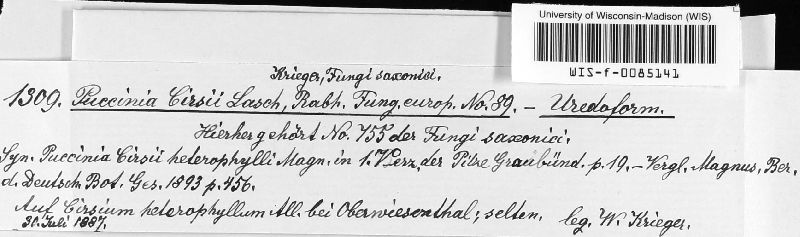 University of Wisconsin-Madison (WIS)
WIS-f-0085141
Krieger, Fungi saxonici.
1309. Puccinia Cirsii Lasch, Rabh. Fung. europ. No. 89. – Uredoform.
Hierher gehört No. 755 der Fungi saxonici.
Syn. Puccinia Cirsii heterophylli Magn. in 1. Verz. der Pilze Graubünd. p. 19. – Vergl. Magnus, Ber.
d. Deutsch. Bot. Ges. 1893 p. 456.
Auf Cirsium heterophyllum All. bei Oberwiesenthal; selten. leg. W. Krieger.
31. Juli 1887.